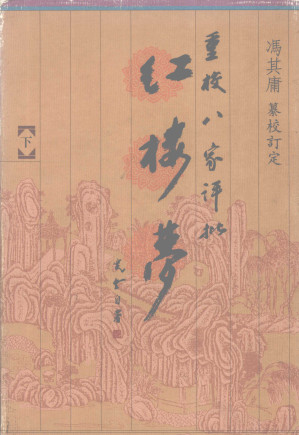 馮其庸 纂校訂定
重校八家評批
红楼夢
【下】